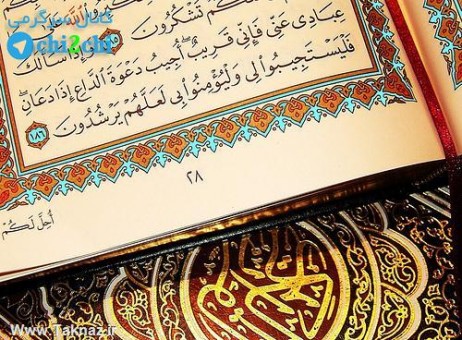 كانال سرگرمی
chi2chi
لَكُمْ تَشْكُرُونَ ١٨٥ وَإِذَا سَأَلَكَ
عِبَادِي عَنِّي فَإِنِّي قَرِيبٌ أُجِيبُ دَعْوَةَ الدَّاعِ إِذَا دَعَانِ
فَلْيَسْتَجِيبُوا لِي وَلْيُؤْمِنُوا بِي لَعَلَّهُمْ يَرْشُدُونَ
١٨٦
٢٨
أُحِلَّ لَكُمْ
Www.Taknaz.ir